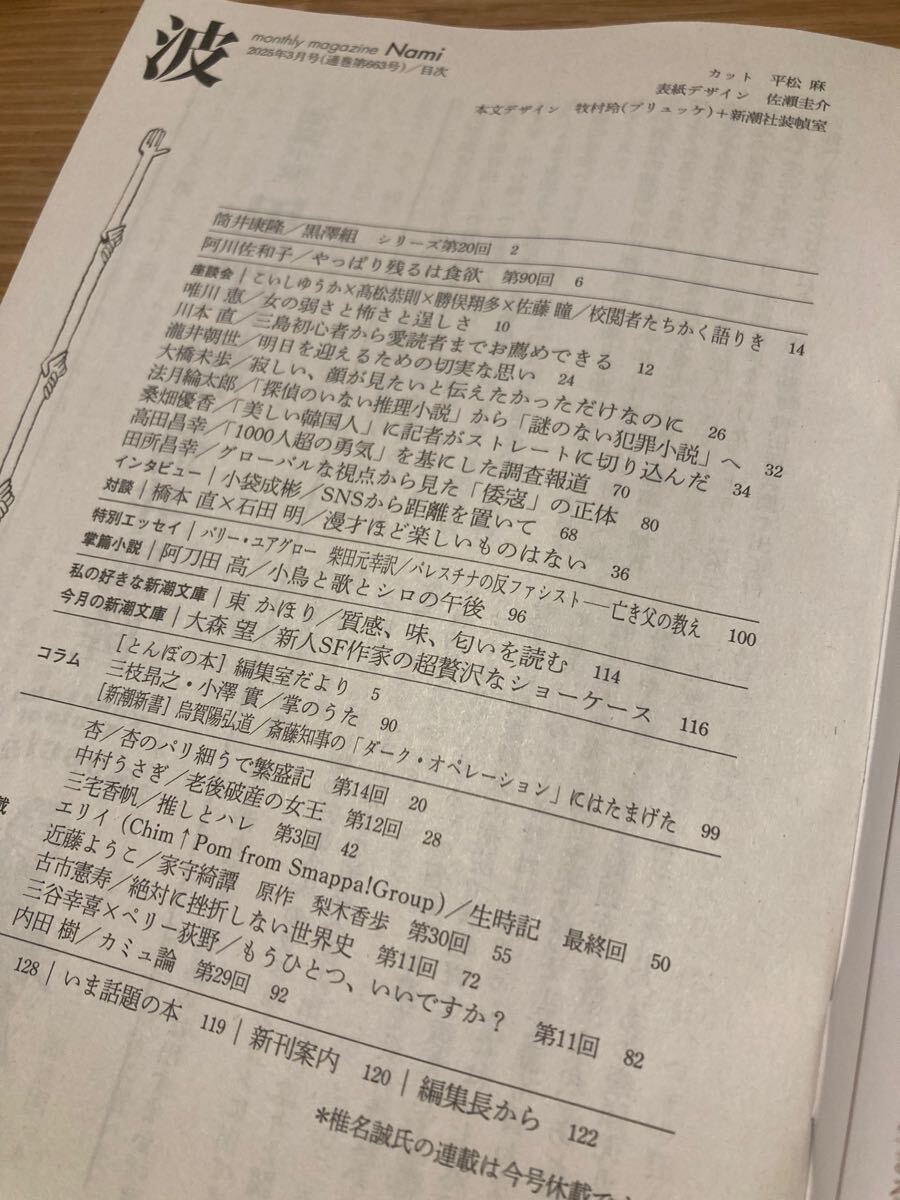 波
monthly magazine Nami
2025年3月号(通巻第663号)／目次
カット 平松 麻
表紙デザイン 佐瀬圭介
本文デザイン 牧村玲(ブリュッケ)＋新潮社装幀室
筒井康隆／黒澤組 シリーズ第20回 2
阿川佐和子／やっぱり残るは食欲 第90回 6
座談会｜こいしゆうか×髙松恭則×勝俣翔多×佐藤 瞳／校閲者たちかく語りき 14
唯川 恵／女の弱さと怖さと逞しさ 10
川本 直／三島初心者から愛読者までお薦めできる 12
瀧井朝世／明日を迎えるための切実な思い 24
大橋未歩／寂しい、顔が見たいと伝えたかっただけなのに 26
法月綸太郎／「探偵のいない推理小説」から「謎のない犯罪小説」へ 32
桑畑優香／「美しい韓国人」に記者がストレートに切り込んだ 34
高田昌幸／「1000人超の勇気」を基にした調査報道 70
田所昌幸／グローバルな視点から見た「倭寇」の正体 80
インタビュー｜小袋成彬／SNSから距離を置いて 68
対談｜橋本 直×石田 明／漫才ほど楽しいものはない 36
特別エッセイ｜バリー・ユアグロー 柴田元幸訳／パレスチナの反ファシスト──亡き父の教え 100
掌篇小説｜阿刀田 高／小鳥と歌とシロの午後 96
私の好きな新潮文庫｜東 かほり／質感、味、匂いを読む 114
今月の新潮文庫｜大森 望／新人SF作家の超贅沢なショーケース 116
コラム
［とんぼの本］編集室だより 5
三枝昻之・小澤 實／掌のうた 90
［新潮新書］烏賀陽弘道／斎藤知事の「ダーク・オペレーション」にはたまげた 99
載
杏／杏のパリ細うで繁盛記 第14回 20
中村うさぎ／老後破産の女王 第12回 28
三宅香帆／推しとハレ 第3回 42
エリイ（Chim↑Pom from Smappa!Group）／生時記 最終回 50
近藤ようこ／家守綺譚 原作 梨木香歩 第30回 55
古市憲寿／絶対に挫折しない世界史 第11回 72
三谷幸喜×ペリー荻野／もうひとつ、いいですか？ 第11回 82
内田 樹／カミュ論 第29回 92
128｜いま話題の本 119｜新刊案内 120｜編集長から 122
*椎名誠氏の連載は今号休載で